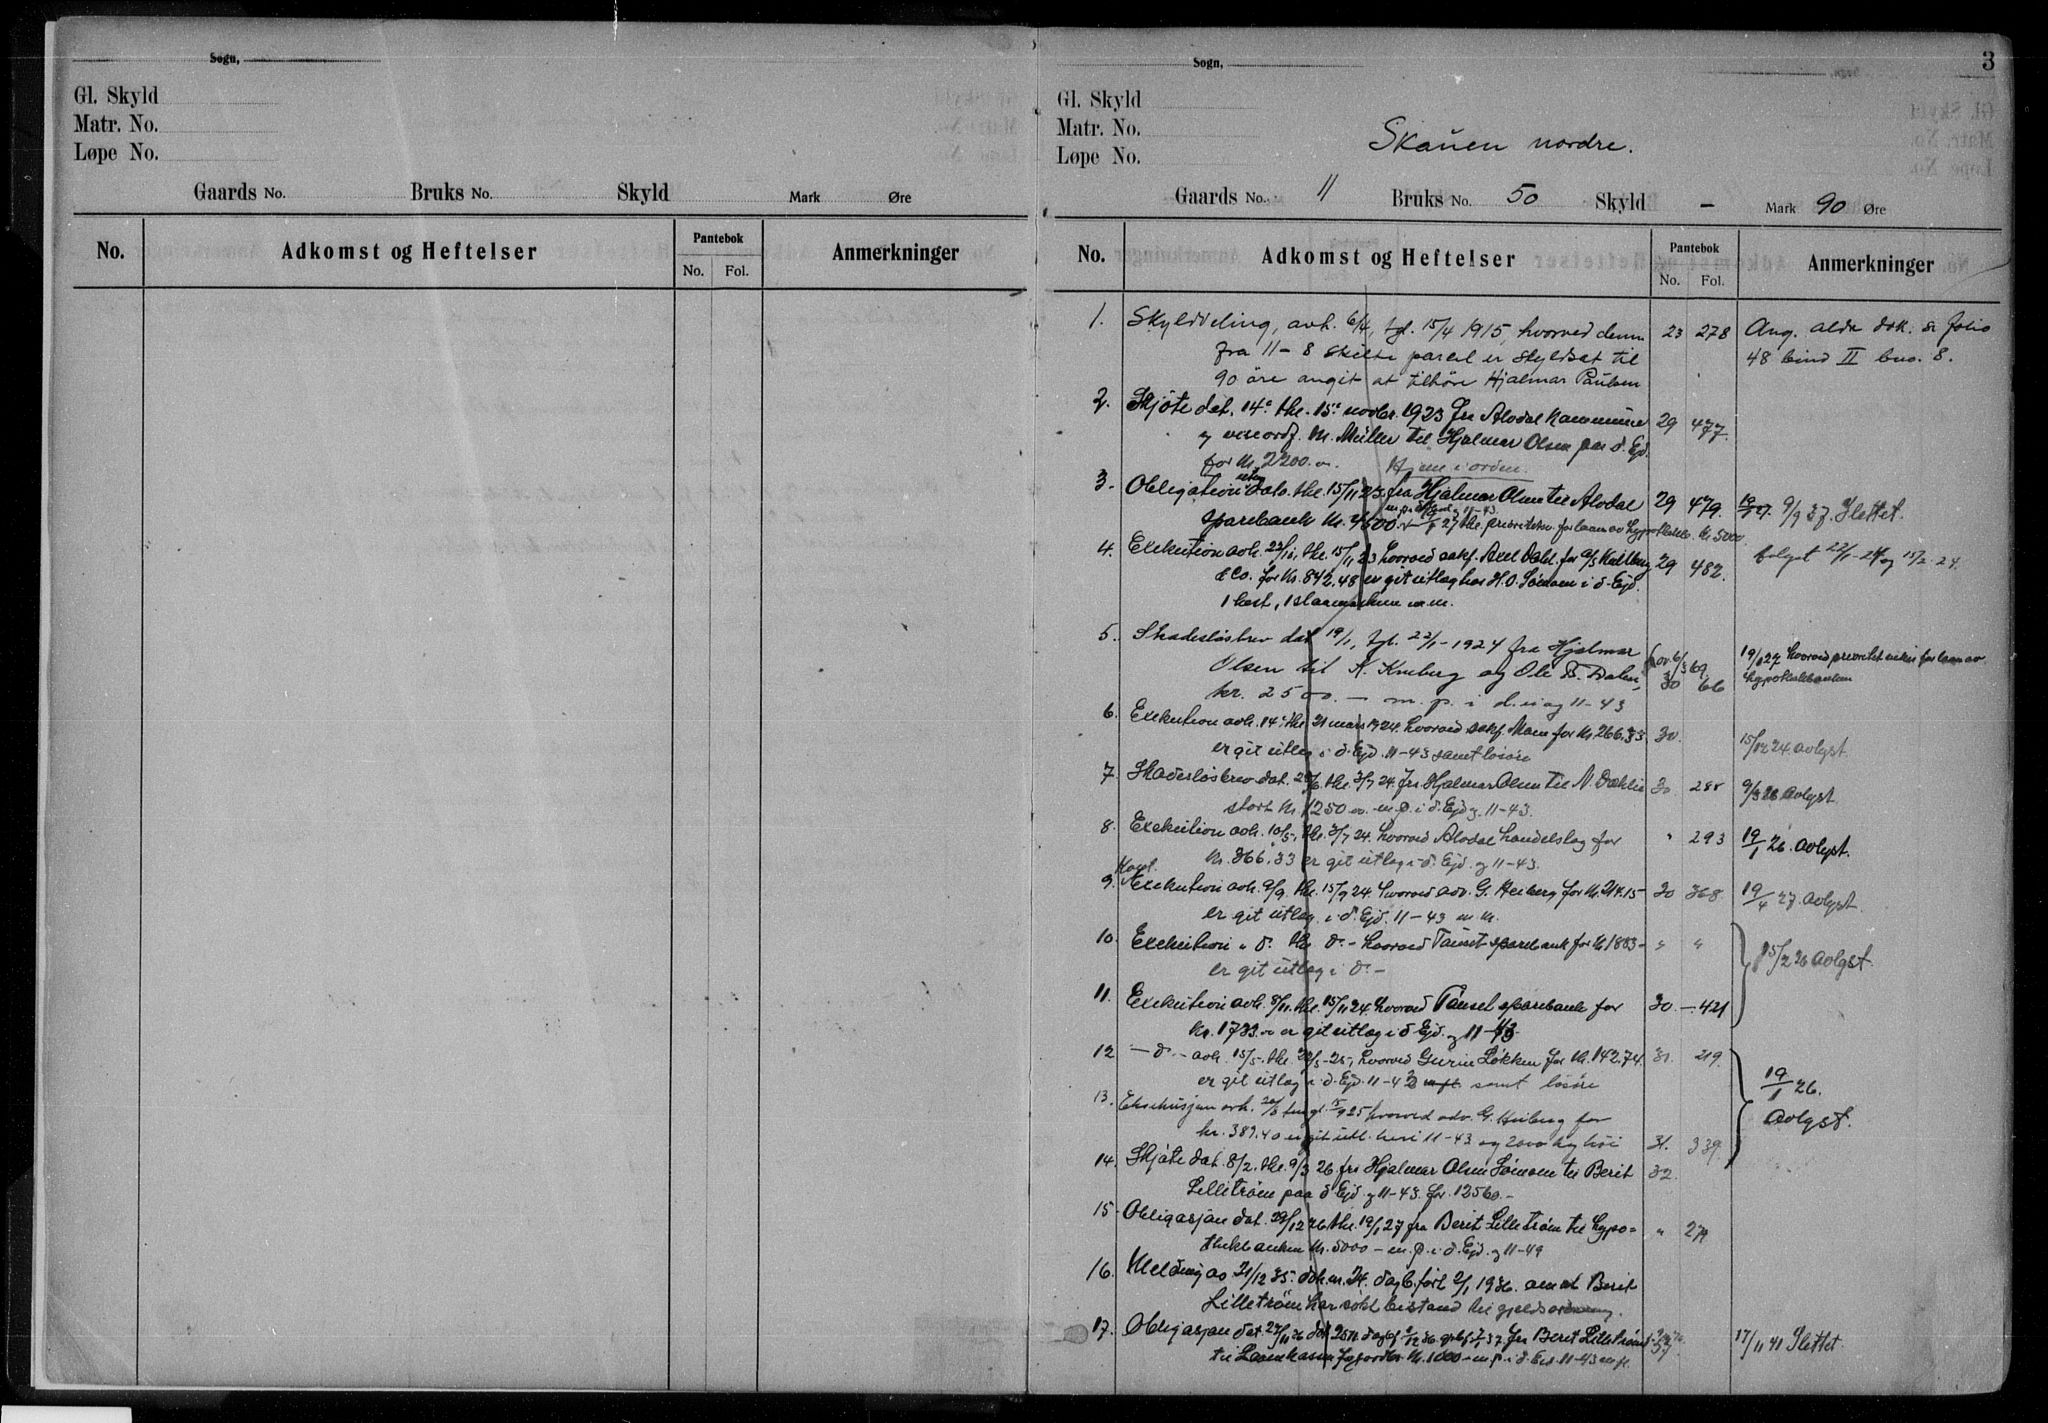 Sogn,
Gl. Skyld
Matr. No.
Løpe No.
Gaards No. Bruks No. Skyld Mark Øre
No. Adkomst og Heftelser Pantebok No. Fol. Anmerkninger
3
Sogn,
Gl. Skyld
Matr. No.
Løpe No.
Skauen nordre.
Gaards No. 11 Bruks No. 50 Skyld - Mark 90 Øre
No. Adkomst og Heftelser Pantebok No. Fol. Anmerkninger
1. Skylddeling, avh. 6/4, tgl. 15/4 1915, hvorved denne 23 278 Ang. aldre dok. se folio
fra 11-8 skilte parcel er skyldsat til 48 bind II bno. 8.
90 øre angit at tilhøre Hjalmar Paulsen
2. Skjøte dat. 14. thl. 15. novbr. 1923 fra Alvdal kommune 29 477.
v viseordf. M. Müller til Hjalmar Olsen paa d. Ejd.
for kr. 2200.
Hjem i orden.
3. Obligation uten dato. thl. 15/11 23. fra Hjalmar Olsen til Alvdal 29 479. 9/9 37. Slettet.
sparebank kr. 4500. 27 thl. prioritetsv. for laan av Hypothekb. kr 5000.
4. Exekution avh. thl. 15/11 23 hvorved sakf. Axel Dahl. for A/S 29 482. 22/1-24 og 15/2-24.
& Co. for kr. 842.48 er git utlæg hos H. O. i d. Ejd.
1 hest, 1 slaamaskine m.m.
5. Skadesløsbrev dat 19/1, tgl. 22/1-1924 fra Hjalmar 19/1 27 hvorved prioritet for laan av
Olsen til K. og Ole B. Dalen, 30 66 Hypothekbanken
kr. 2500.- m. p. i d. eig 11-43
6. Exekution avh. 14. thl. 21 mars 1924. hvorved sakf. Moen for kr. 266.33 30. 15/12 24. avlyst.
er git utlæg i d. Ejd. 11-43 samt løsøre
7. Skadesløsbrev dat. thl. 3/7 24. fra Hjalmar Olsen til N. Dæhlie 30 288 9/3 26 avlyst.
stort kr. 1250. m. p. i d. Ejd og 11-43.
8. Exekution avh. 10/5, thl. 3/7 24. hvorved Alvdal handelslag for " 293 19/1 26. avlyst.
kr. 366.33 er git utlæg i d. Ejd. og 11-43.
9. Exekution avh. 9/9 thl. 15/9 24 hvorved adv. G. Heiberg for kr. 214.15 30 368. 19/4 27 avlyst.
er git utlæg i d. Ejd. 11-43 m. m.
10. Exekution " d. thl d. - hvorved Tønset sparebank for kr 1883- " " 15/2 26 avlyst.
er git utlæg i d. -
11. Exekution avh. 8/11. thl. 15/11 24 hvorved Tønset sparebank for 30. - 421
kr. 1733. er git utlæg i d Ejd. og 11-43.
12 - d. - avh. 15/5. thl. 25. hvorved Gurine Løkken for kr. 142.74. 31. 219. 19/1 26.
er git utlæg i d. Ejd. 11-43 samt løsøre avlyst.
13. Eksekusjon avh. tingl. 15/9 25 hvorved adv. G. Heiberg for
kr. 389.40 er git utl. heri 11-43 og 2000 kg høi 31. 339.
14. Skjøte dat. 8/2. thl. 9/3 26 fra Hjalmar Olsen til Berit 32.
Lillestrøm paa d Ejd. og 11-43. for 12560.-
15 Obligasjon dat. 29/12 26 thl. 19/1 27 fra Berit Lillestrøm til hypo- "
thekbanken kr. 5000 - m. p. i d. Ejd. og 11-49
16. Melding av 31/12 35. dagb. ført 2/1 1936. om at Berit
Lillestrøm har søkt bistand til gjeldsordning.
17. Obligasjon dat. fra Berit Lillestrøm 17/11 41 Slettet.
til Laanekassen for jordbr. kr. 1000 - m. p. i d. Eid. 11-43 m. fl.